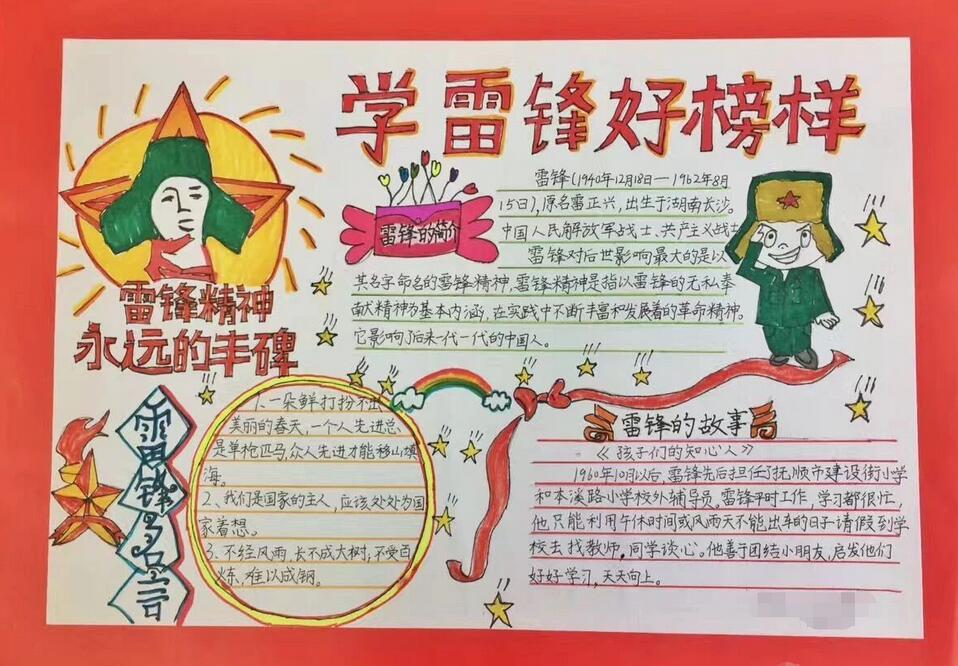 学雷锋好榜样
雷锋精神
永远的丰碑
雷锋的简介
雷锋(1940年12月18日—1962年8月
15日),原名雷正兴,出生于湖南长沙。
中国人民解放军战士、共产主义战士
雷锋对后世影响最大的是以
其名字命名的雷锋精神,雷锋精神是指以雷锋的无私奉
献精神为基本内涵,在实践中不断丰富和发展着的革命精神。
它影响了后来一代一代的中国人。
雷锋名言
1、一朵鲜打扮不出
美丽的春天,一个人先进总
是单枪匹马,众人先进才能移山填
海。
2、我们是国家的主人,应该处处为国
家着想。
3、不经风雨,长不成大树,不受百
炼,难以成钢。
雷锋的故事
《孩子们的知心人》
1960年10月以后,雷锋先后担任了抚顺市建设街小学
和本溪路小学校外辅导员。雷锋平时工作,学习都很忙,
他只能利用午休时间或风雨天不能出车的日子请假到学
校去找教师,同学谈心。他善于团结小朋友,启发他们
好好学习,天天向上。